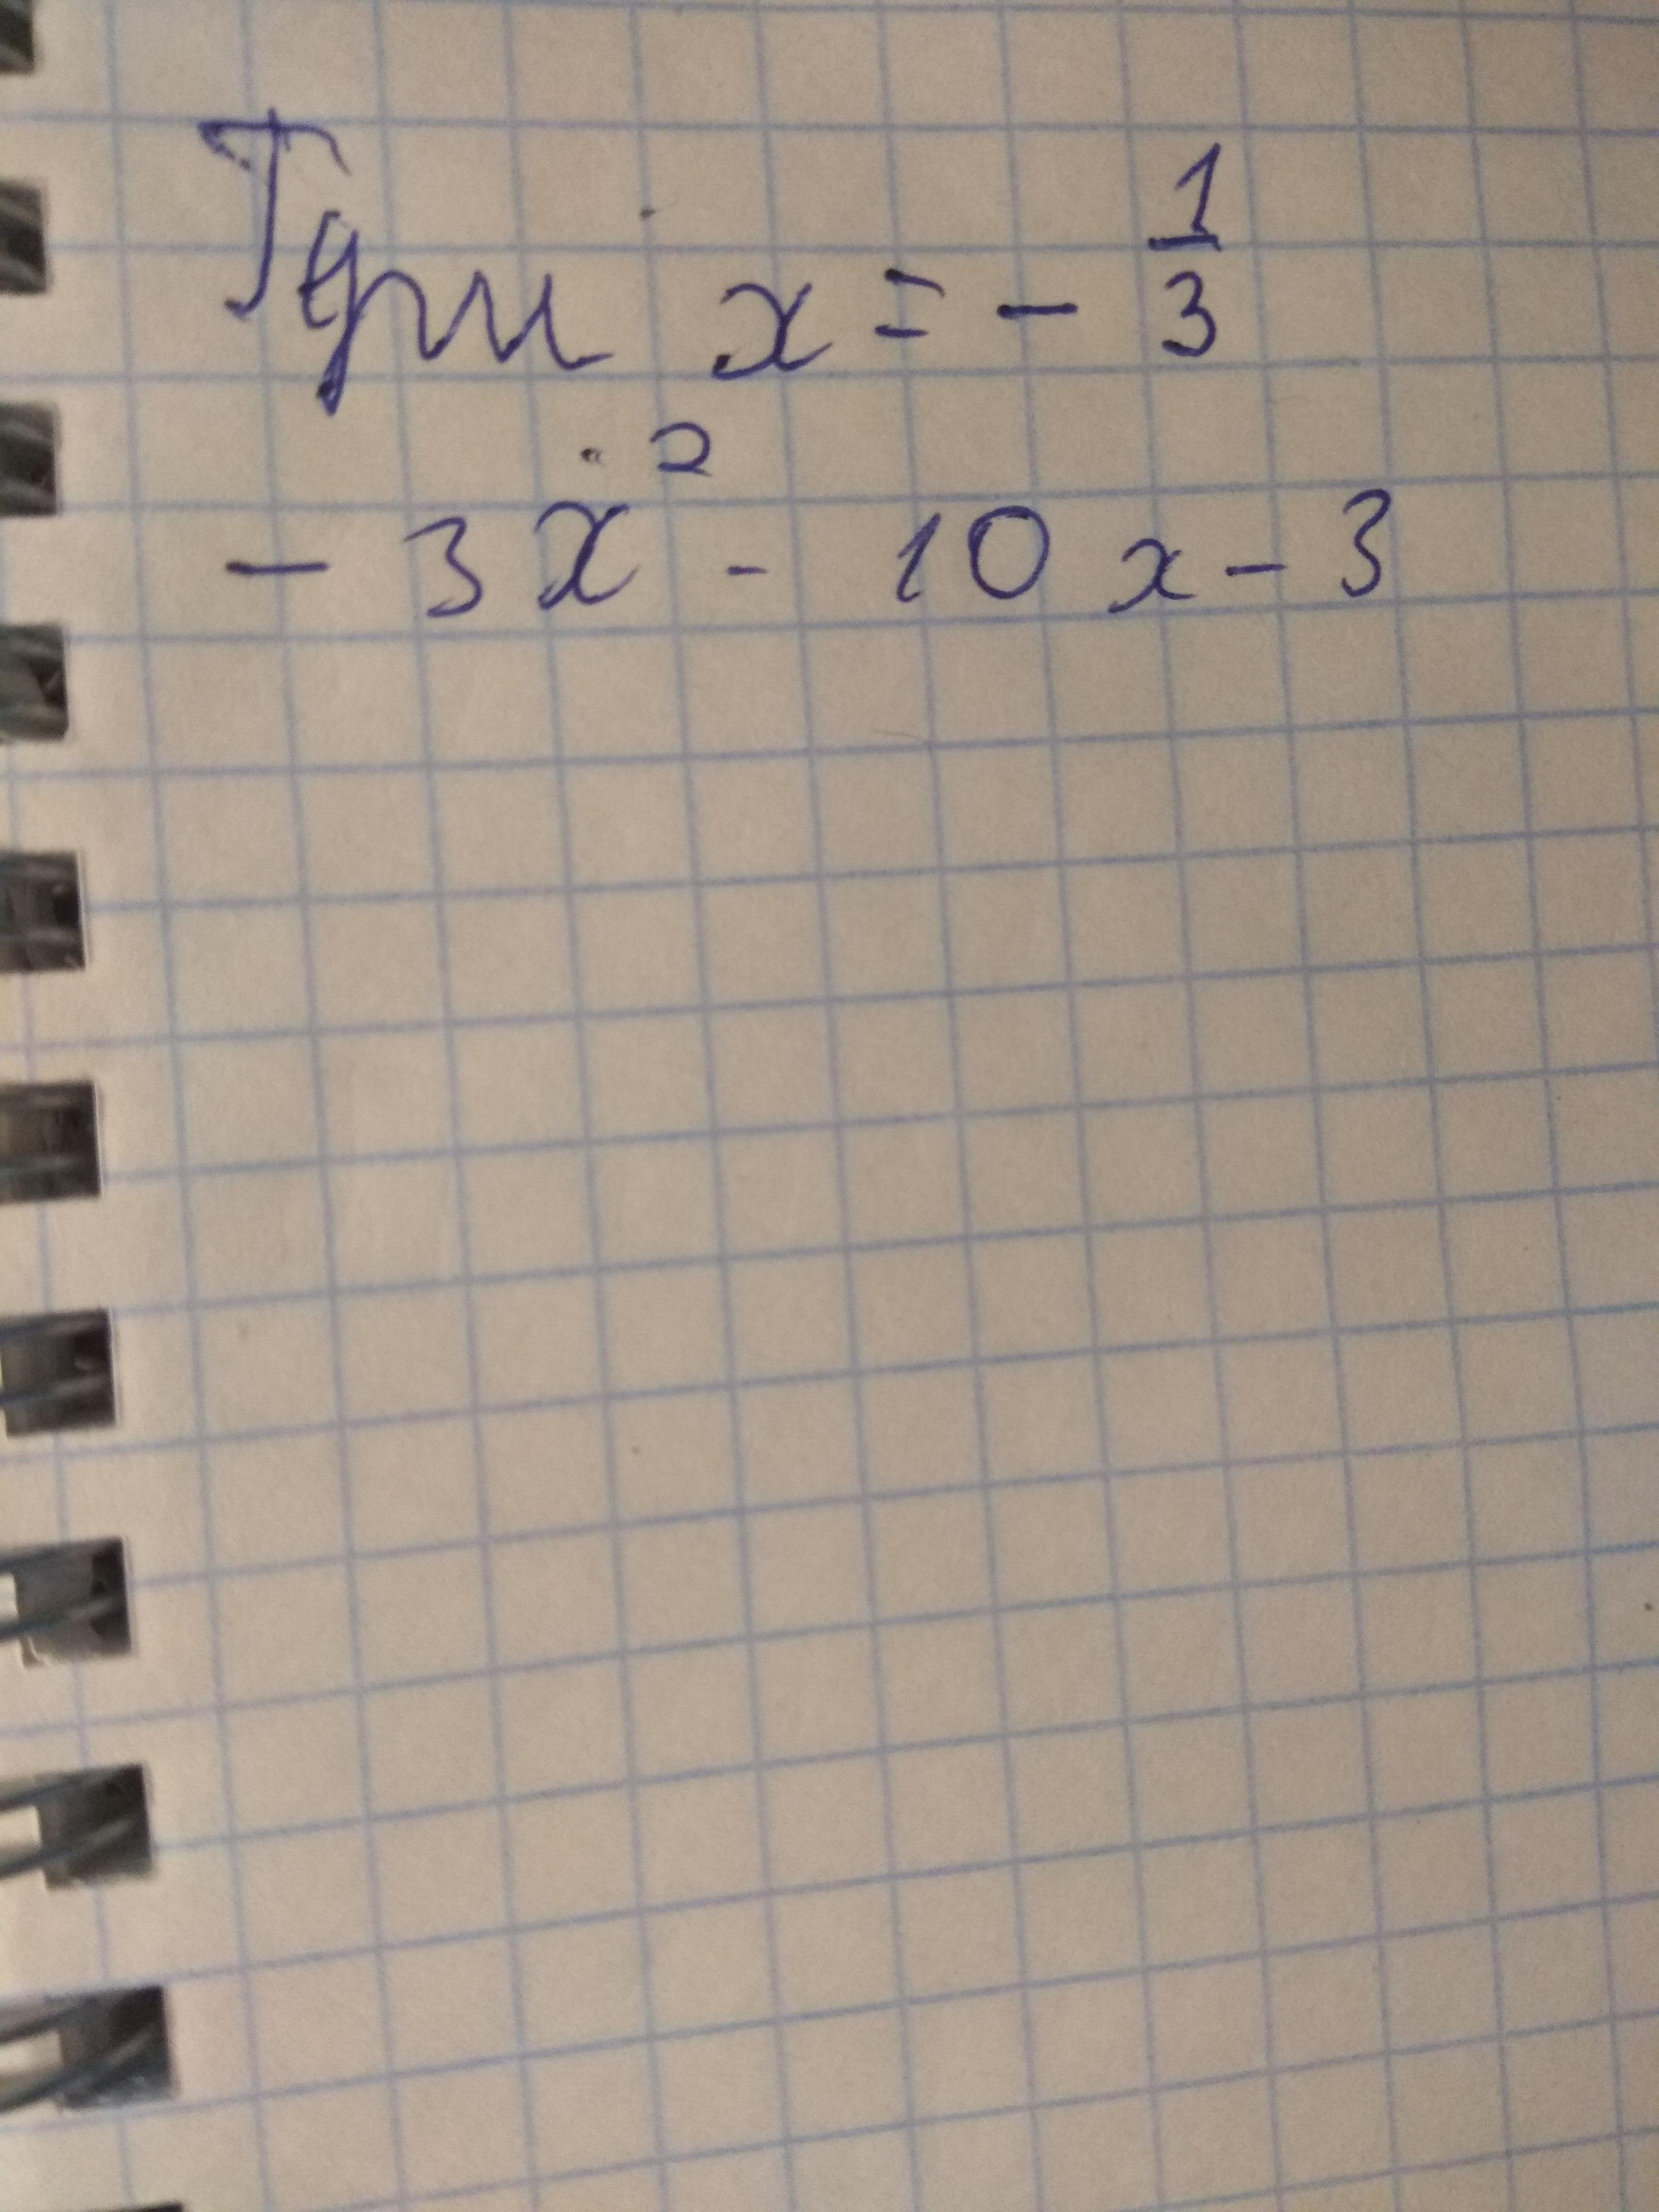 При x = - 1/3
- 3x² - 10x - 3